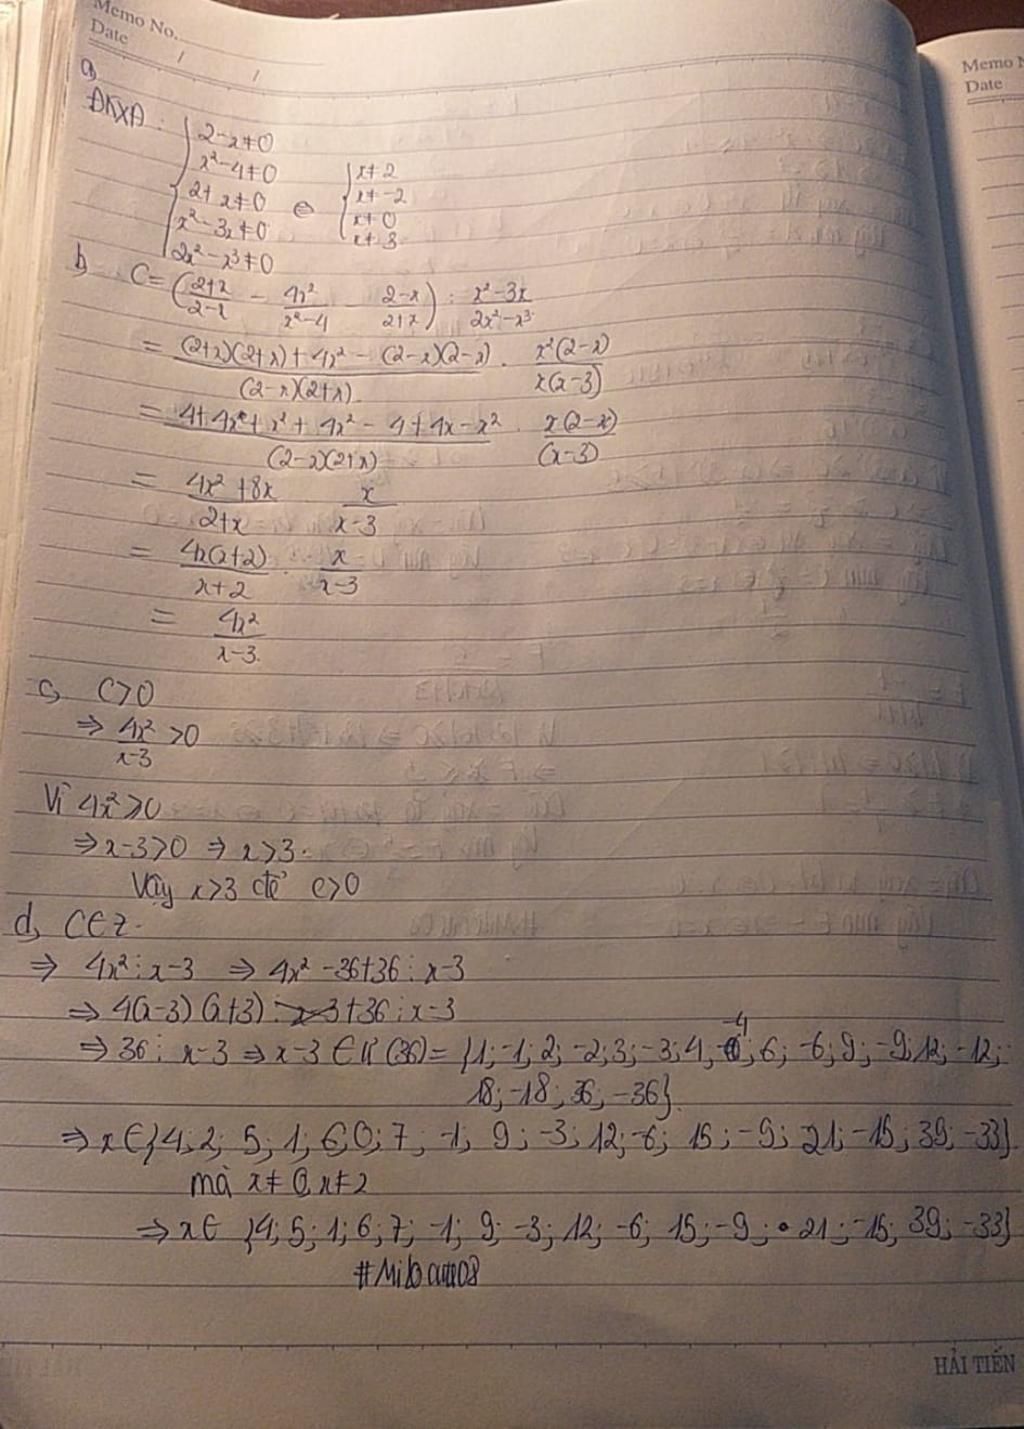 Memo No.
Date / /
Memo
Date
a,
ĐKXĐ: { 2-x≠0
x²-4≠0
2+x≠0
x²-3x≠0
2x²-x³≠0
⇔ { x≠2
x≠-2
x≠0
x≠3
b, C = (2+x/2-x - 4x²/x²-4 - 2-x/2+x) : x²-3x/2x²-x³
= (2+x)(2+x)+4x²-(2-x)(2-x)/(2-x)(2+x) . x²(2-x)/x(x-3)
= 4+4x+x²+4x²-4+4x-x²/(2-x)(2+x) . x(2-x)/(x-3)
= 4x²+8x/2+x x/x-3
= 4x(x+2)/x+2 . x/x-3
= 4x²/x-3
c, C>0
⇒ 4x²/x-3 >0
Vì 4x²≥0
⇒x-3>0 ⇒ x>3.
Vậy x>3 để C>0
d, C∈Z.
⇒ 4x²⋮x-3 ⇒ 4x²-36+36⋮x-3
⇒ 4(x-3)(x+3)+36⋮x-3
⇒ 36⋮x-3 ⇒x-3∈Ư(36)= {1;-1;2;-2;3;-3;4,-4;6;-6;9;-9;12;-12;
18;-18;36;-36}.
⇒x∈{4;2;5;1;6;0;7;-1;9;-3;12;-6;15;-9;21;-15;39;-33}.
mà x≠0,x≠2
⇒x∈ {4;5;1;6;7;-1;9;-3;12;-6;15;-9;21;-15;39;-33}
HẢI TIẾN